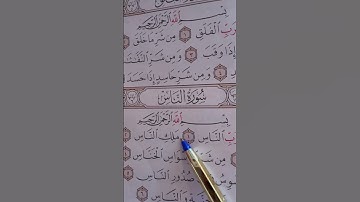 بِسْمِ اللَّهِ الرَّحْمَٰنِ الرَّحِيمِ
رَبِّ الْفَلَقِ ۝ مِن شَرِّ مَا خَلَقَ
إِذَا وَقَبَ ۝ وَمِن شَرِّ النَّفَّ
۝ وَمِن شَرِّ حَاسِدٍ إِذَا حَسَدَ
سُورَةُ النَّاسِ
بِسْمِ اللَّهِ الرَّحْمَٰنِ الرَّحِيمِ
بِّ النَّاسِ ۝ مَلِكِ النَّاسِ
مِن شَرِّ الْوَسْوَاسِ الْخَنَّاسِ
وِسُ صُدُورِ النَّاسِ
وَالنَّاسِ